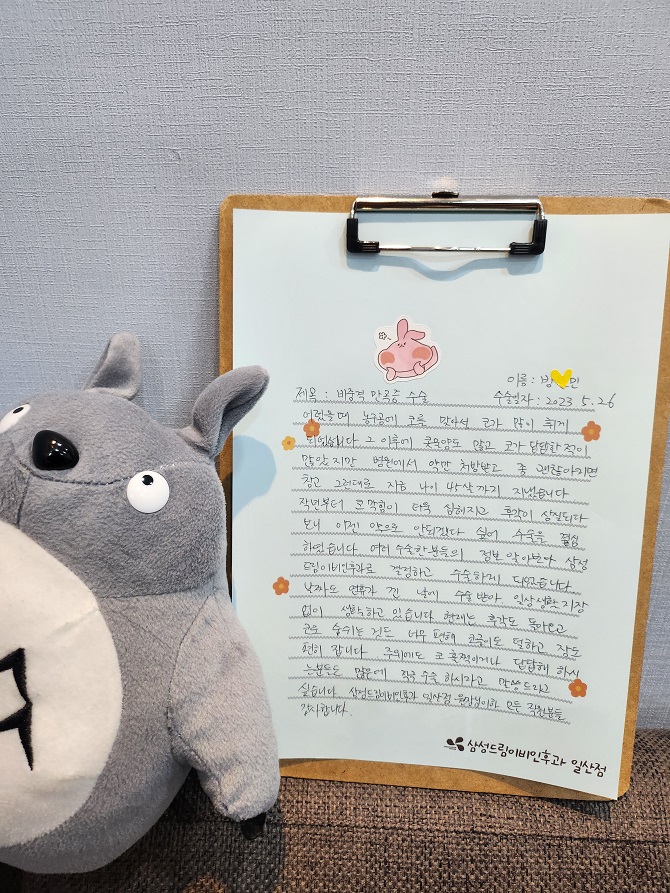 이름: 방 민
제목 : 비중격 만곡증 수술 수술일자 : 2023. 5. 26
어렸을때 농구공에 코를 맞아서 코가 많이 휘게
되었습니다 그 이후에 콧물양도 많고 코가 답답한 적이
많았지만 병원에서 약만 처방받고 좀 괜찮아지면
참고 그런대로 지금 나이 45살까지 지냈습니다
작년부터 코막힘이 더욱 심해지고 후각이 상실되다
보니 이젠 약으로 안되겠다 싶어 수술을 결심
하였습니다 여러 수술한 분들의 정보 알아본다 삼성
드림이비인후과로 결정하고 수술하게 되었습니다
날짜도 연휴가 긴 날에 수술 받아 일상생활 지장
없이 생활하고 있습니다 현재는 후각도 돌아오고
코로 숨쉬는 것도 너무 편해 코골이도 덜하고 잠도
편히 잡니다 주위에도 코 훌쩍이거나 답답해 하시
는분들은 수술 하시라고 말씀드리고
싶습니다 삼성드림이비인후과 일산점 모든 직원분들
감사합니다.
삼성드림이비인후과 일산점